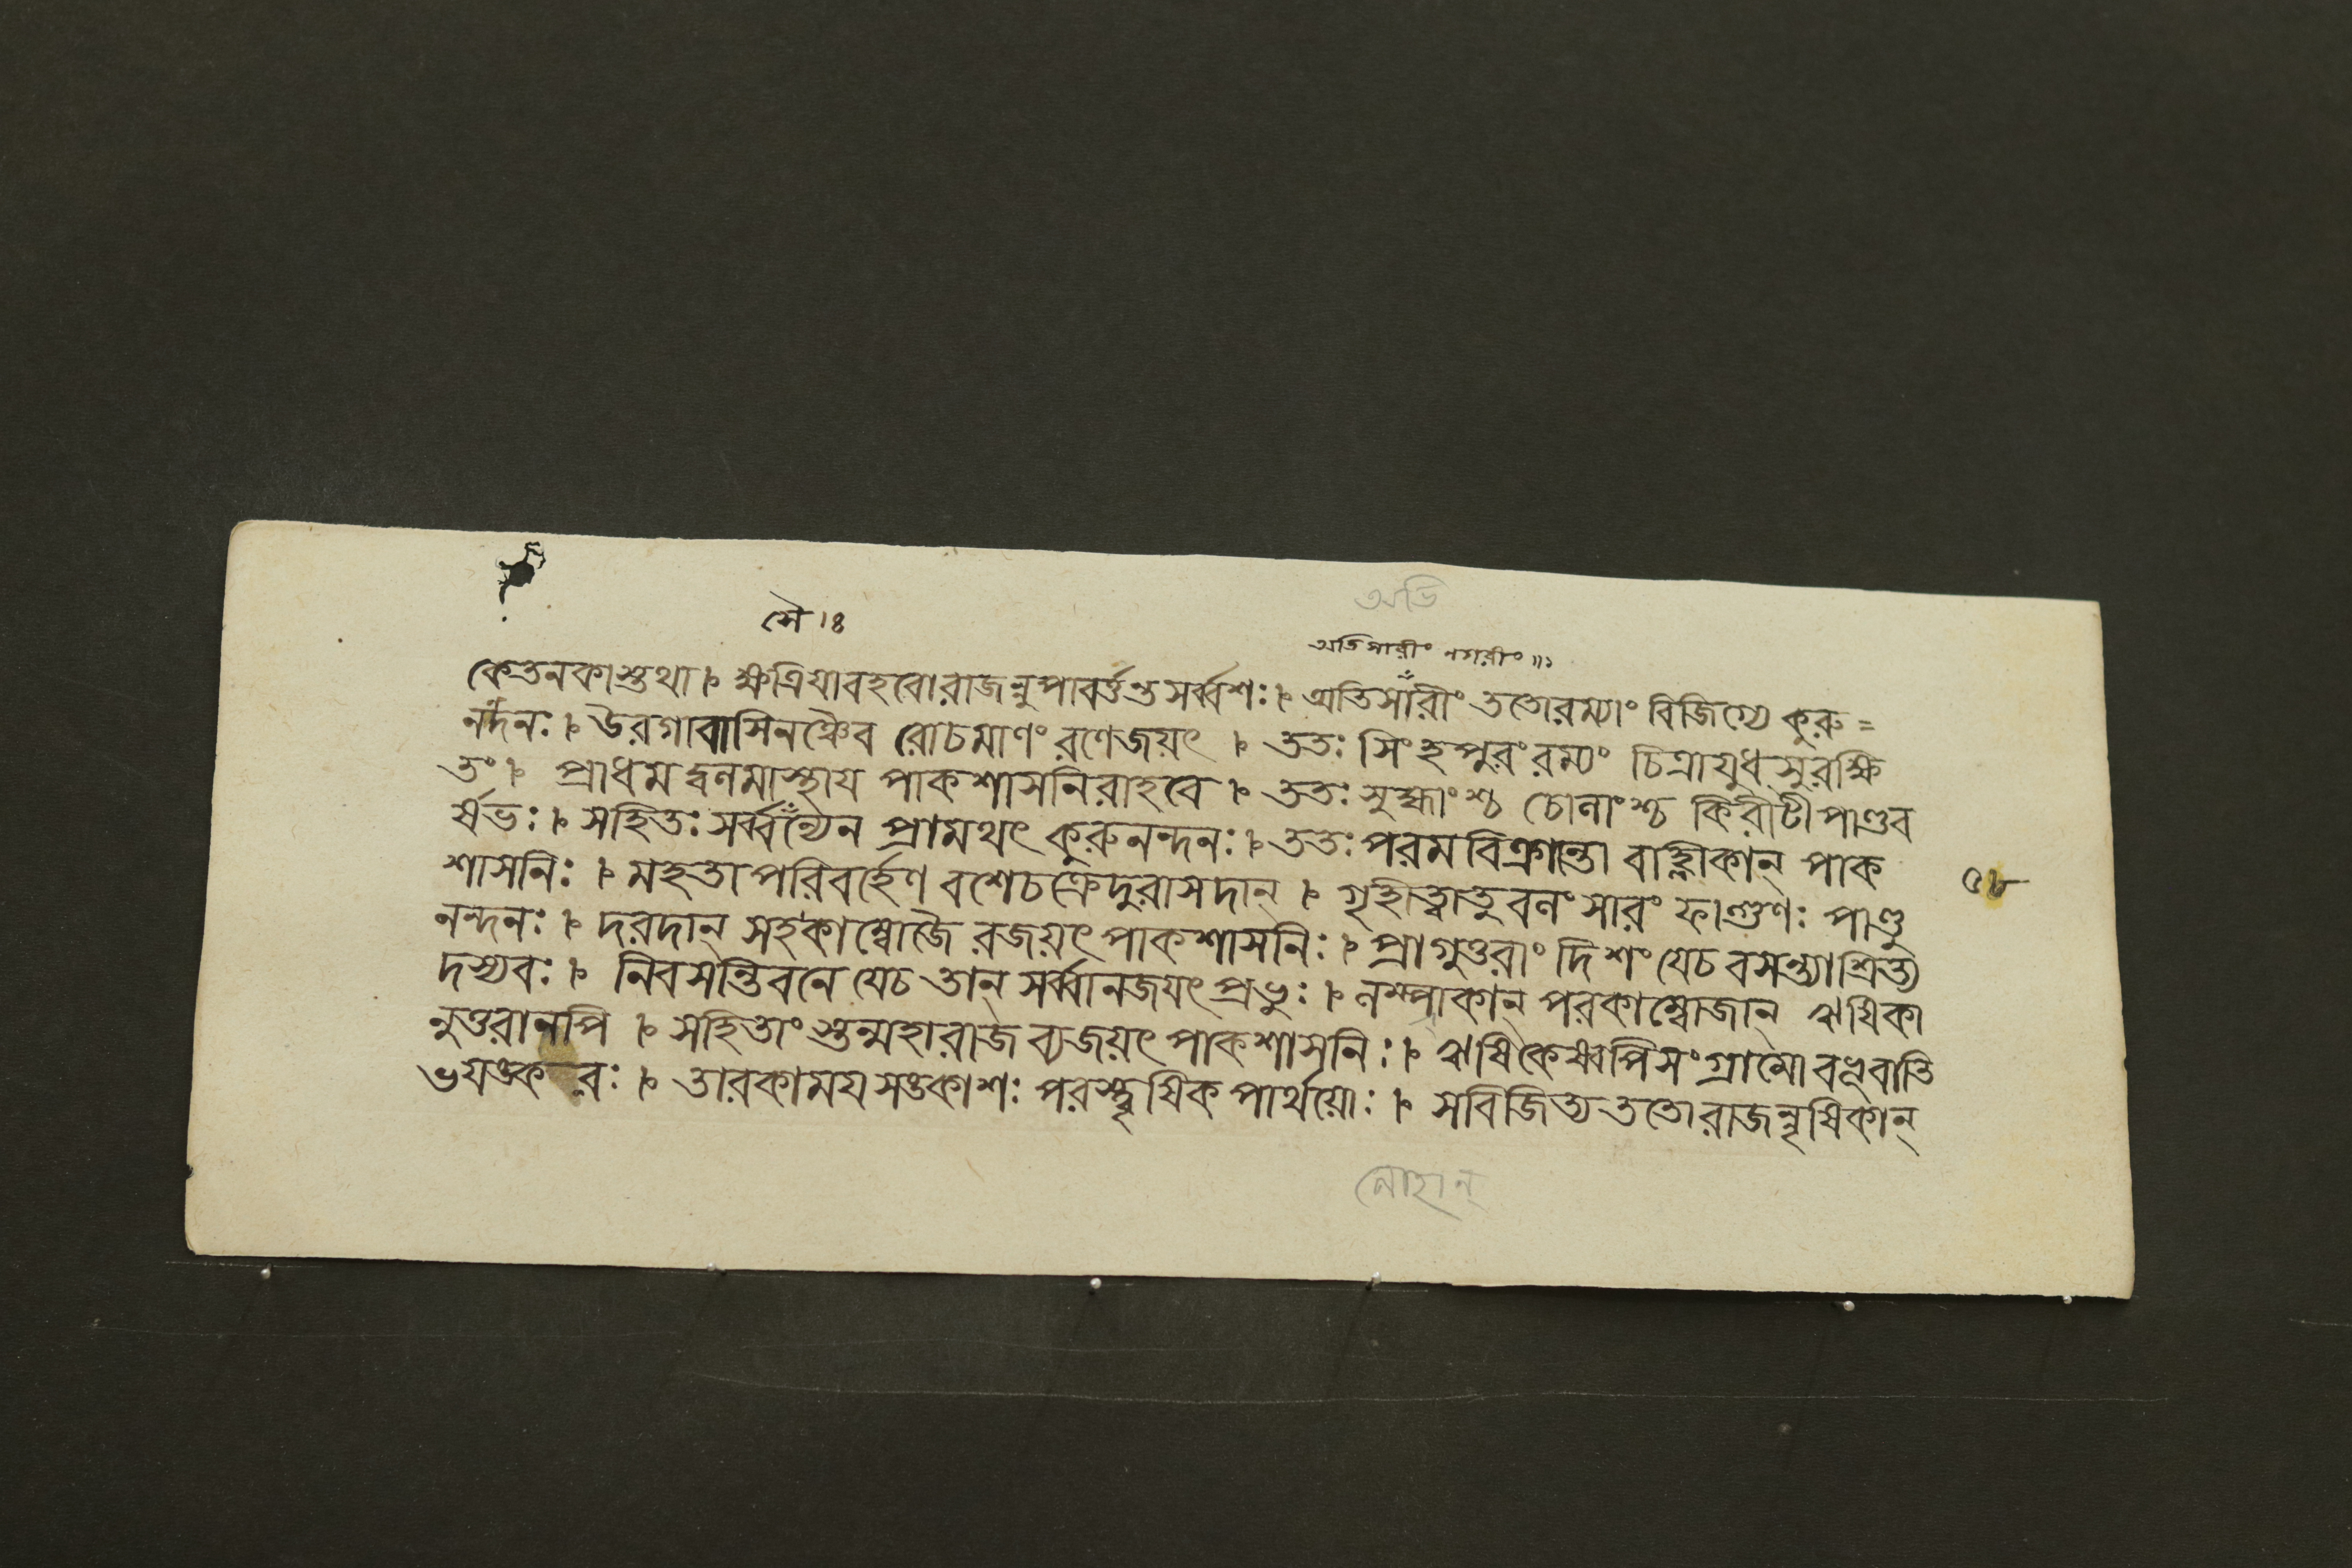 অভি
সৈ ।৪
অভিসারীং নগরীং ॥১
কেতনকাস্তথা । ক্ষত্রিযাবহবোরাজন্নুপাবর্ত্তন্তসর্ব্বশঃ । অভিসারীং ততোরম্যাং বিজিগ্যে কুরু=
নন্দনঃ । উরগাবাসিনঞ্চৈব রোচমাণং রণেজয়ৎ । ততঃ সিংহপুরং রম্যং চিত্রাযুধসুরক্ষি
তং । প্রাধমদ্বনমাস্থায পাকশাসনিরাহবে । ততঃ সুহ্মাংশ্চ চোনাংশ্চ কিরীটী পাণ্ডব
র্ষভঃ । সহিতঃ সর্ব্বন্যেন প্রামথৎ কুরুনন্দনঃ । ততঃ পরমবিক্রান্তো বাহ্লীকান্ পাক
শাসনিঃ । মহতা পরিবর্হেণ বশেচক্রেদুরাসদান্ । গৃহীত্বাতুবনং সারং ফাল্গুণঃ পাণ্ডু
৫৮
নন্দনঃ । দরদান্ সহকাম্বোজৈ রজয়ৎ পাকশাসনিঃ । প্রাগুত্তরাং দিশং যেচ বসন্ত্যাশ্রিত্য
দস্যবঃ । নিবসন্তিবনে যেচ তান্ সর্ব্বানজযৎ প্রভুঃ । নম্পাকান্ পরকাম্বোজান্ ঋষিকা
নুত্তরানপি । সহিতাং স্তন্মহারাজ ব্যজয়ৎ পাকশাসনিঃ । ঋষিকেষ্বপিসংগ্রামো বভূবাতি
ভযঙ্করঃ । তারকাময সঙ্কাশঃ পরস্ত্বৃষিক পার্থয়োঃ । সবিজিত্য ততোরাজন্নৃষিকান্
লোহান্